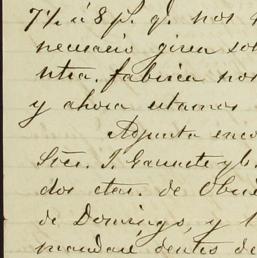 7½ á 8 p. g. nos
necesario giren so
ntra. fabrica nos
y ahora estamos
Adjunta enco
Sres. J.
dos ctas. de Obse
de Domingo, y l
mandaré dentro de